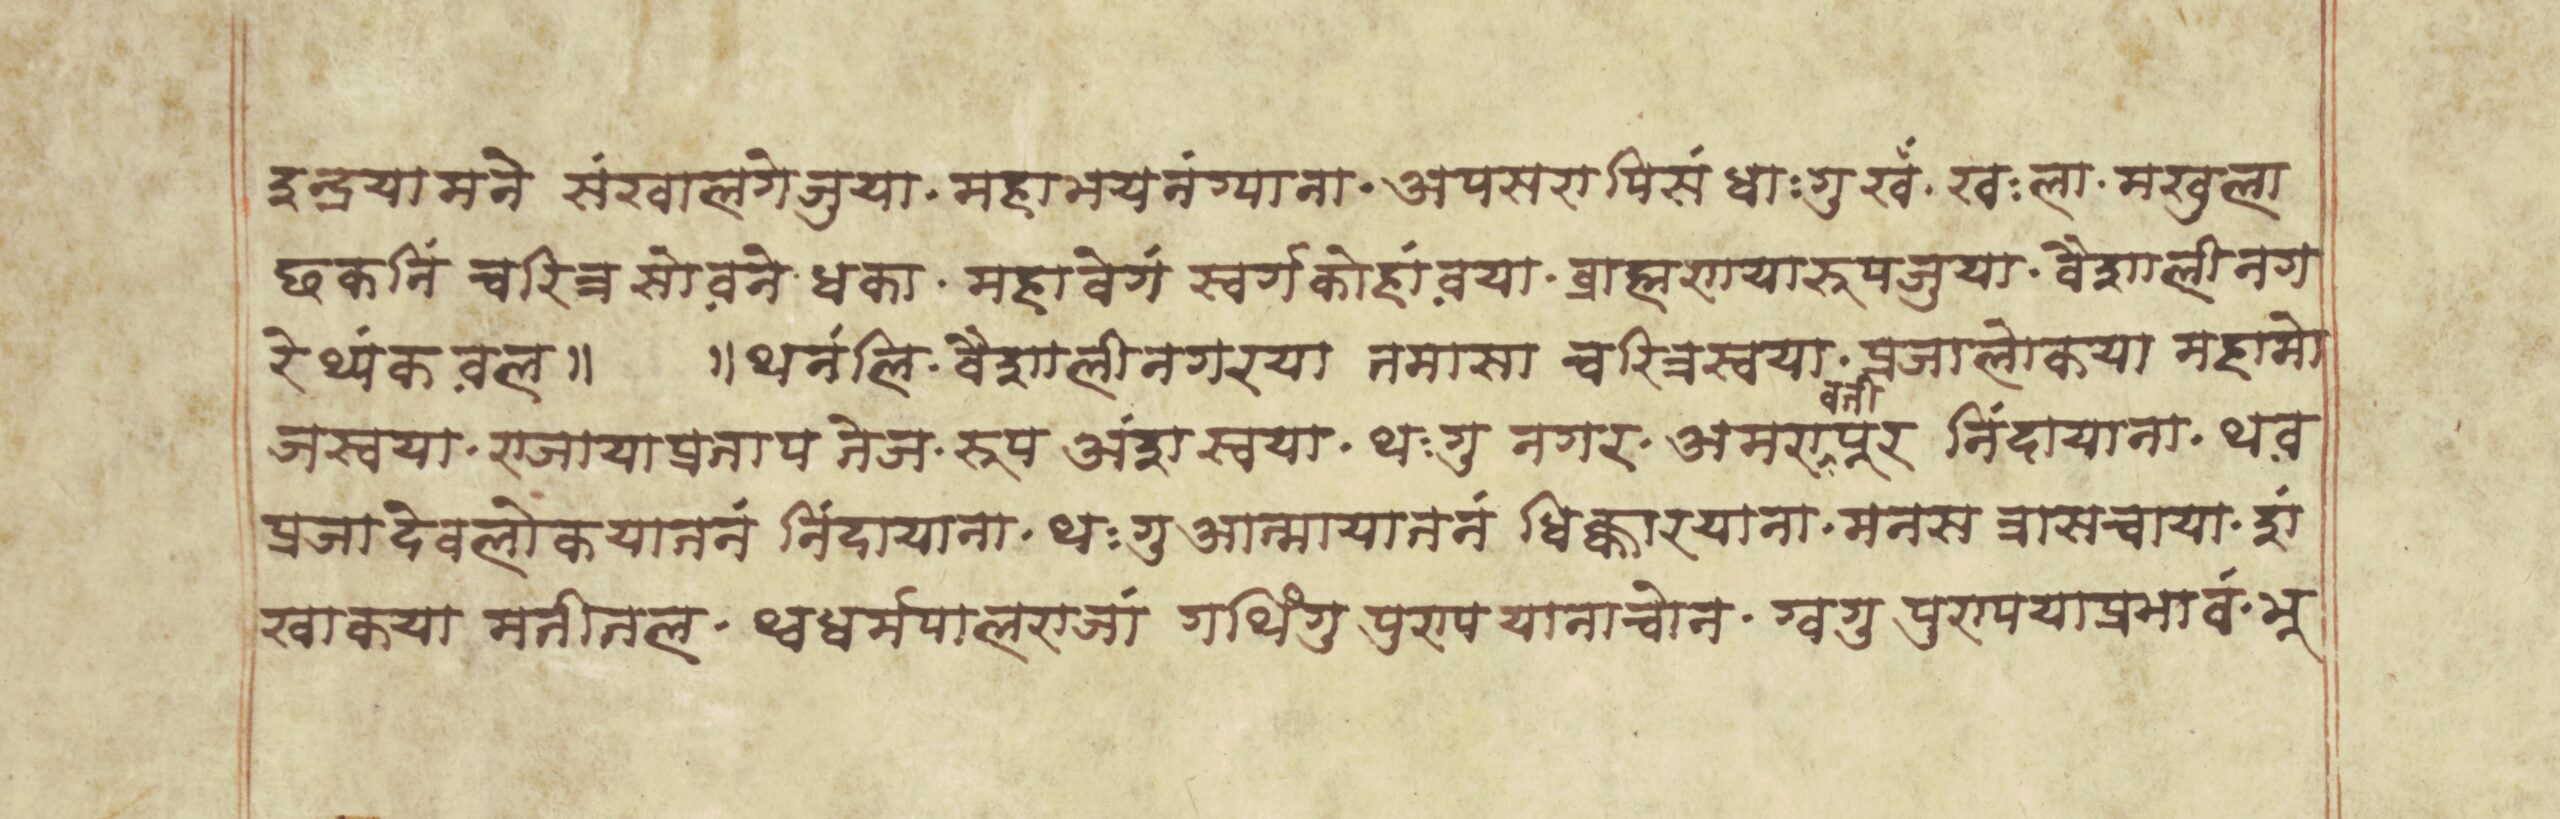 इन्द्रयामने संखालगेजुया॰ महाभयनंग्याना॰ अपसरापिसं धाःगु खँ॰ खःला॰ मखुला
छकनिं चरित्र सोव़ने॰ धका॰ महावेगं स्वर्गकोहांव़या॰ ब्राह्मणयारूपजुया॰ वैशालीनग
रे थ्यंक व़ल॥ ॥थनंलि॰ वैशालीनगरया तमासा चरित्रस्वया॰ प्रजालोकया महामो
जस्वया॰ राजायाप्रताप तेज॰ रूप अंश स्वया॰ थःगु नगर॰ अमरावतीपुर निंदायाना॰ थव़
प्रजा देवलोकयातनं निंदायाना॰ थःगु आत्मायातनं धिक्कारयाना॰ मनस त्रासचाया॰ शं
खाकया मतीतल॰ थ्वधर्मपालराजां गथिंगु पुराप यानाचोन॰ ग्वगु पुरापयाप्रभावं॰ भू